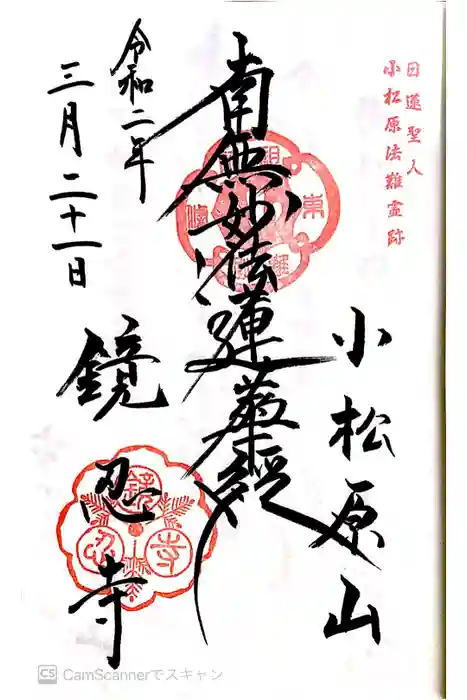 日蓮聖人
小松原法難霊跡
小松原山
南無妙法蓮華経
令和二年
三月二十一日
鏡忍寺
鏡
忍
寺
CS CamScannerでスキャン